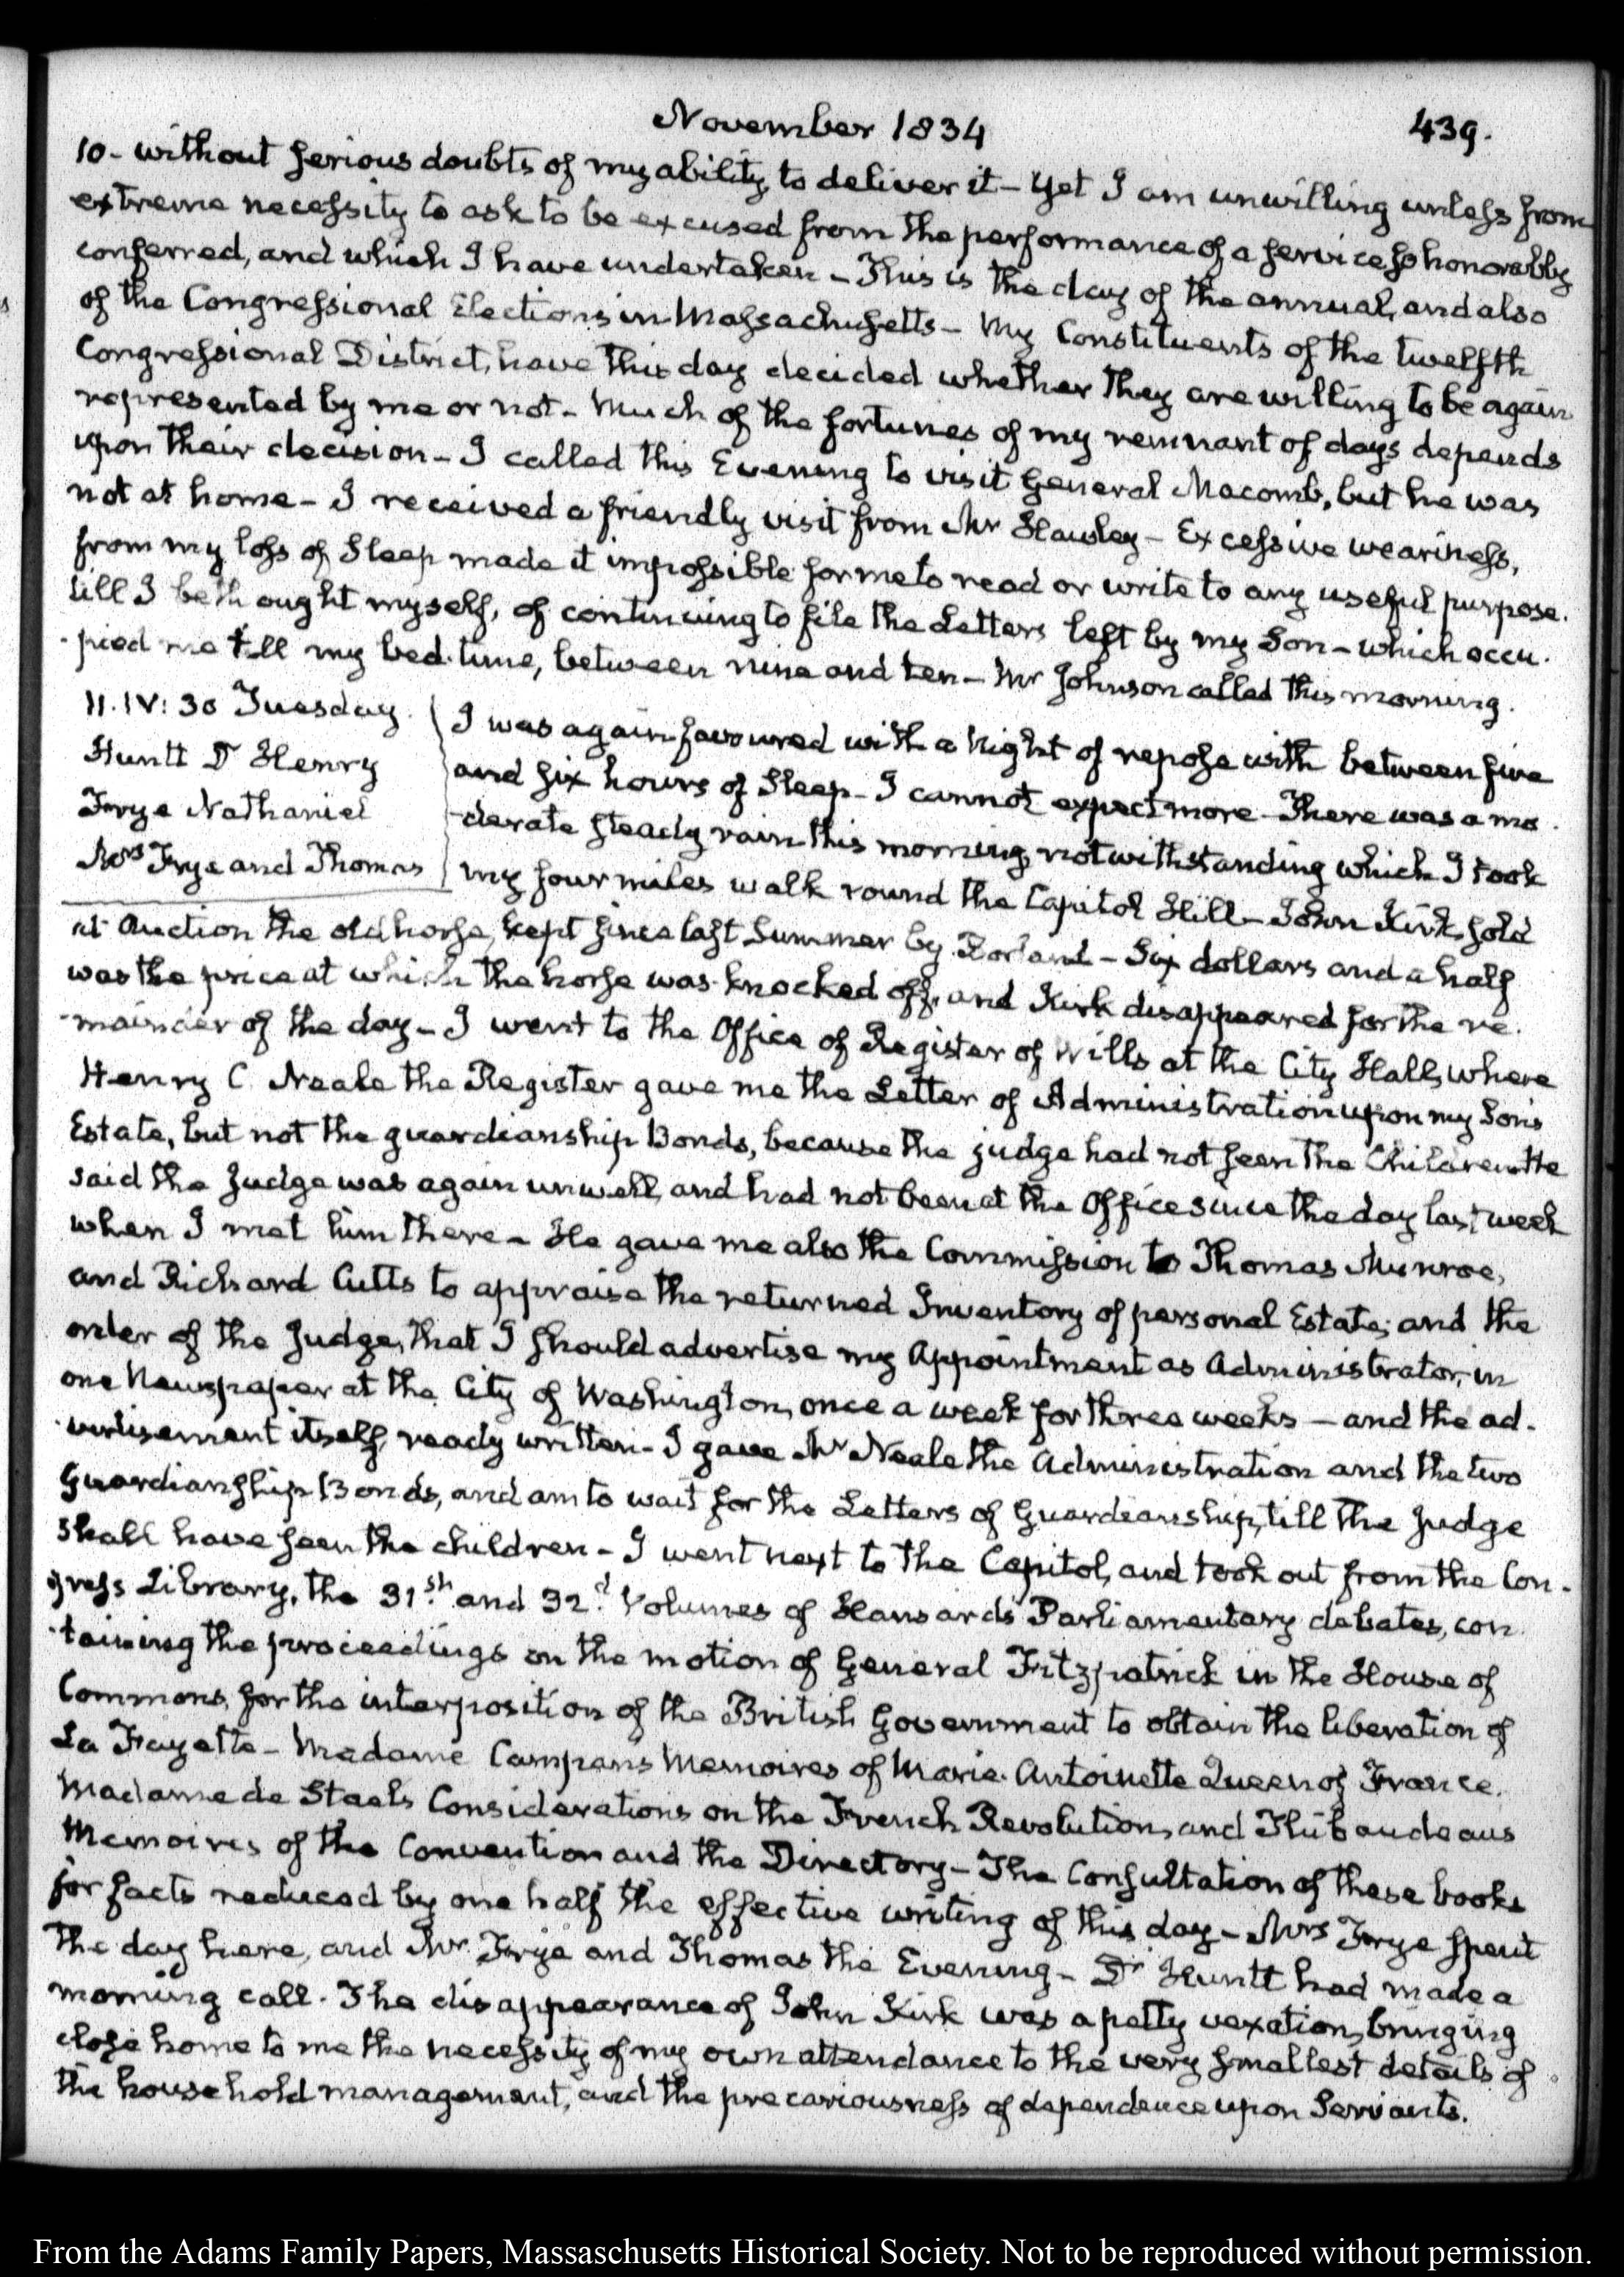 November 1834 439.
10- without serious doubts of my ability, to deliver it - Yet I am unwilling unless from
extreme necessity to ask to be excused from the performance of a service, so honorably
conferred, and which I have undertaken - This is the day of the annual, and also
of the Congressional Elections in Massachusetts - My Constituents of the twelfth
Congressional District, have this day decided whether they are willing to be again
represented by me or not - Much of the fortunes of my remnant of days depends
upon their decision - I called this Evening to visit General Macomb, but he was
not at home - I received a friendly visit from Mr Hawley - Excessive weariness,
from my loss of Sleep made it impossible for me to read or write to any useful purpose.
till I bethought myself, of continuing to file the Letters left by my Son - which occu-
-pied me till my bed-time, between nine and ten - Mr Johnson called this morning.
11. IV: 30 Tuesday.
Huntt Dr Henry
Frye Nathaniel
Mrs Frye and Thomas
I was again favoured with a Night of repose with between five
and six hours of Sleep - I cannot expect more - There was a mo-
-derate steady rain this morning, notwithstanding which I took
my four miles walk round the Capitol Hill - John Kirk, sold
at Auction the old horse, kept since last Summer by - Six dollars and a half
was the price at which the horse was knocked off, and Kirk disappeared for the re-
-mainder of the day - I went to the Office of Register of Wills at the City Hall, where
Henry C. Neale the Register gave me the Letter of Administration upon my Son's
Estate, but not the guardianship Bonds, because the judge had not seen the Children. He
said the Judge was again unwell, and had not been at the Office since the day last week
when I met him there - He gave me also the Commission to Thomas Munroe,
and Richard Cutts to appraise the returned Inventory of personal Estate; and the
order of the Judge, that I should advertise my Appointment as Administrator, in
one Newspaper at the City of Washington, once a week for three weeks - and the ad-
-vertisement itself, ready written - I gave Mr Neale the Administration and the two
Guardianship Bonds, and am to wait for the Letters of Guardianship, till the Judge
shall have seen the children - I went next to the Capitol, and took out from the Con-
gress Library, the 31st. and 32d. Volumes of Hansards Parliamentary debates, con-
-taining the proceedings on the motion of General Fitzpatrick in the House of
Commons, for the interposition of the British Government to obtain the liberation of
La Fayette - Madame Campans Memoires of Marie Antoinette Queen of France.
Madame de Staels Considerations on the French Revolution, and Thibaudeaus
Memoires of the Convention and the Directory - The Consultation of these books
for facts reduced by one half the effective writing of this day - Mrs Frye spent
the day here, and Mr Frye and Thomas the Evening - Dr Huntt had made a
morning call. The disappearance of John Kirk was a petty vexation, bringing
close home to me the necessity of my own attendance to the very smallest details of
the household management, and the precariousness of dependence upon Servants.
From the Adams Family Papers, Massaschusetts Historical Society. Not to be reproduced without permission.